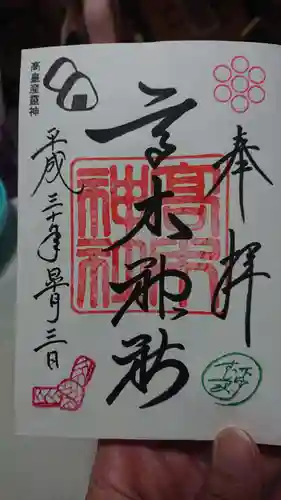 奉拝
高木神社
高木神社
高皇産霊神
平成三十年 月三日